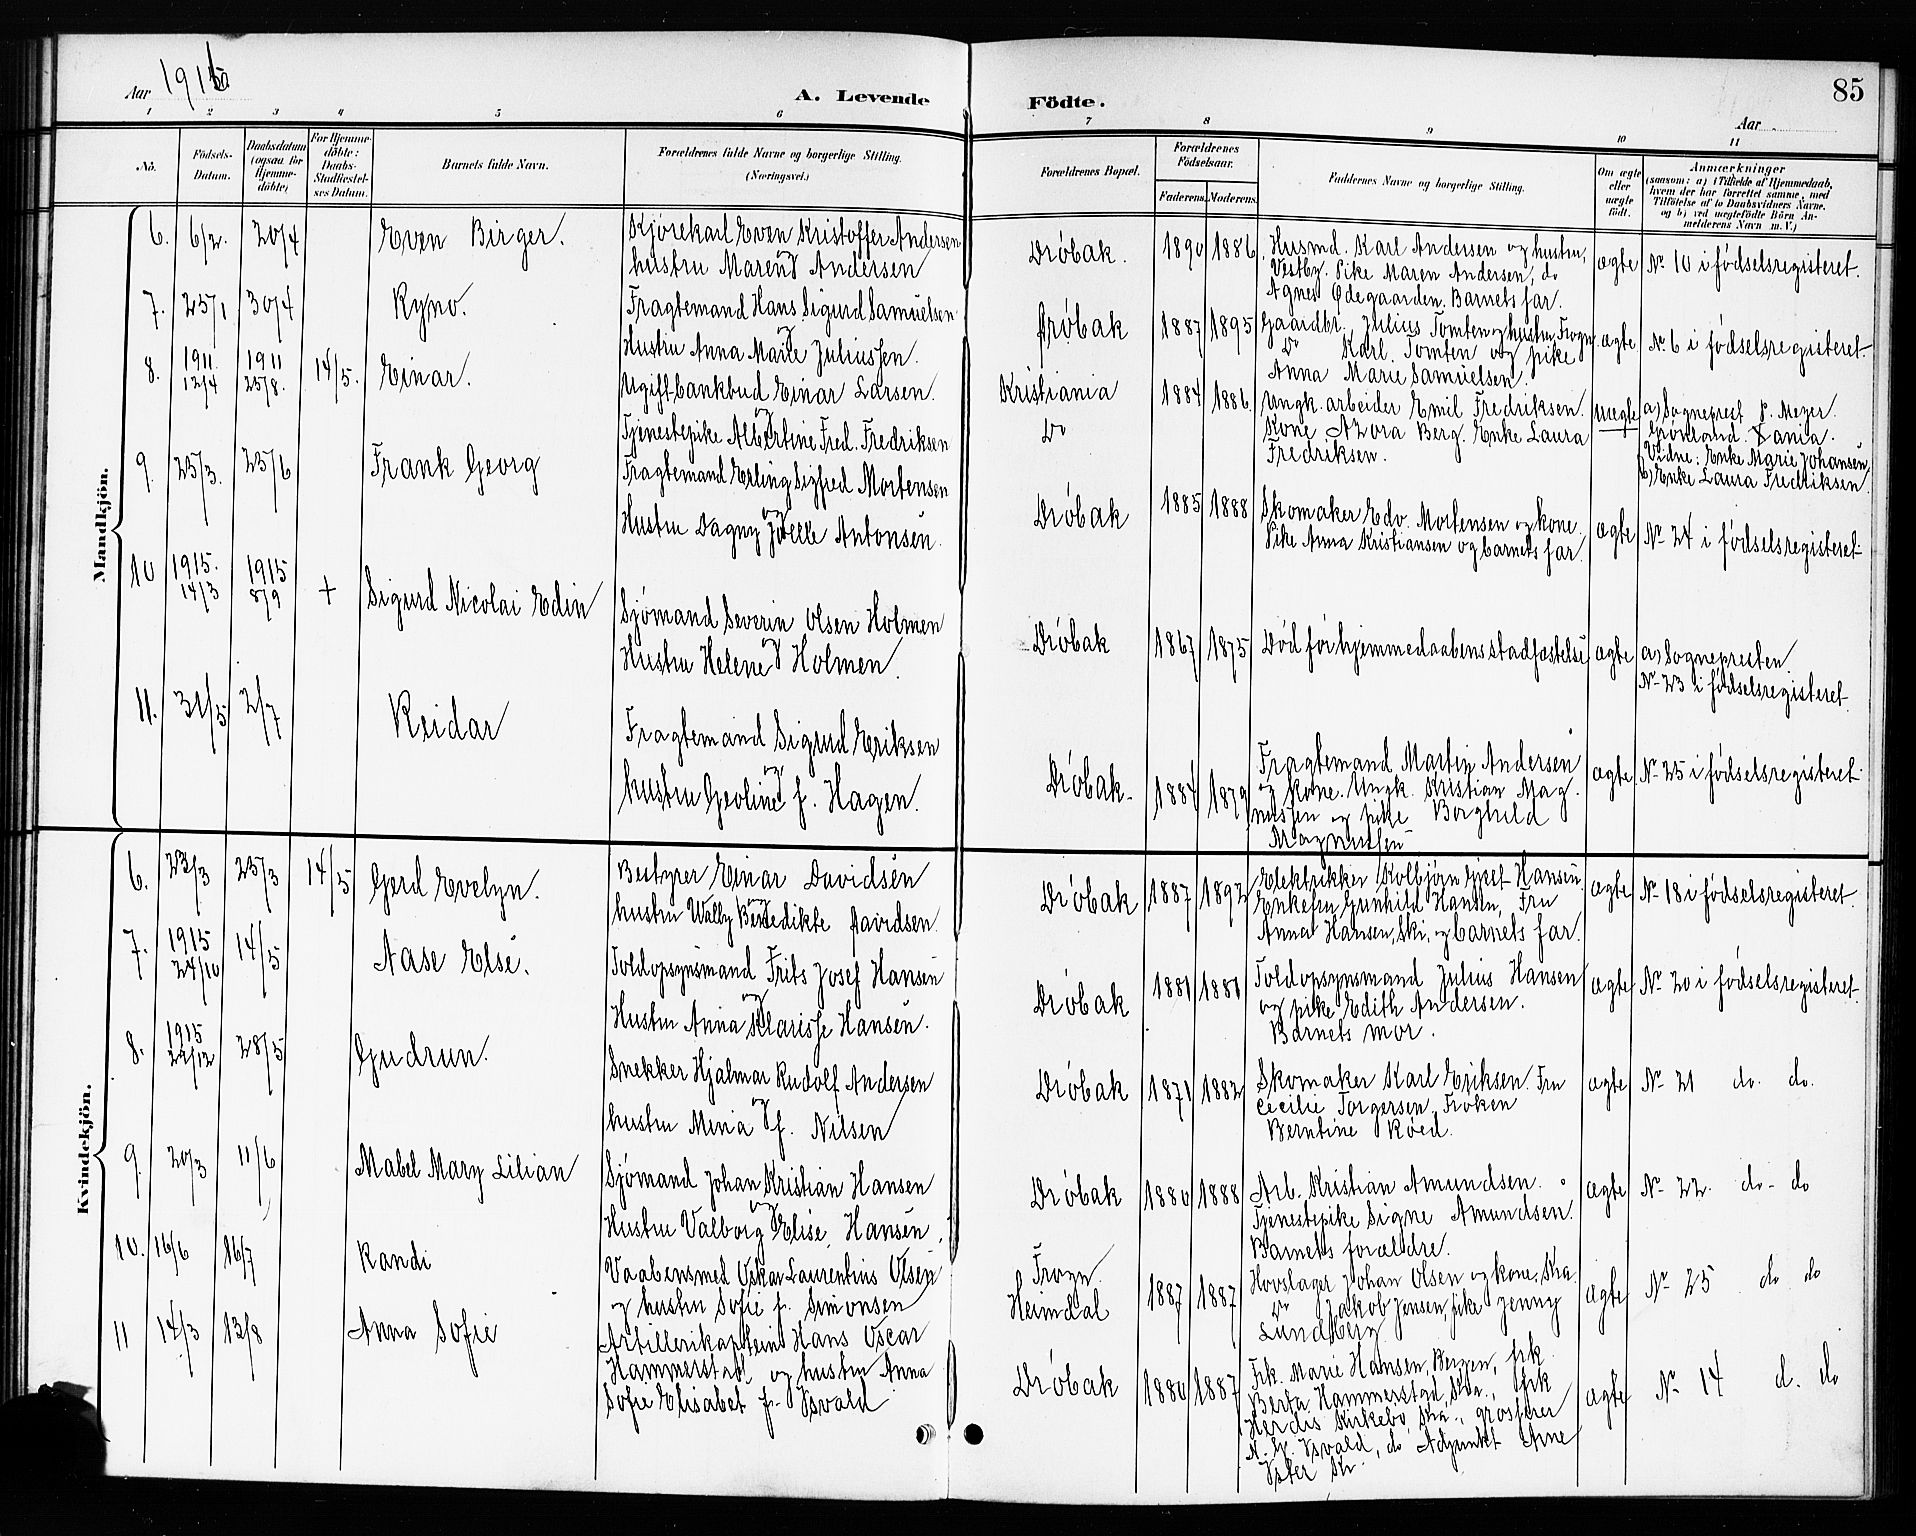 Aar 1916
A. Levende
Födte.
85
Aar
1 2 3 4 5 6 7 8 9 10 11
No.
Födsels-Datum.
Daabsdatum (ogsaa for Hjemme-döbte)
For Hjemme-döbte: Daabs-Stadfæstel-ses Datum.
Barnets fulde Navn.
Forældrenes fulde Navne og borgerlige Stilling. (Næringsvei.)
Forældrenes Bopæl.
Forældrenes Födselsaar.
Faderens. Moderens.
Faddernes Navne og borgerlige Stilling.
Om ægte eller uægte födt.
Anmærkninger
(saasom: a) i Tilfælde af Hjemmedaab,
hvem der har forrettet samme, med
Tilföielse af to Daabsvidners Navne.
og b) ved uægtefödte Börn An-
melderens Navn m. V.)
Mandkjön.
6. 6/2. 20/4 Even Birger.
Kjörekarl Even Kristoffer Andersen
og
hustru Maren Andersen
Dröbak. 1890 1886
Husmd. Karl Andersen og hustru,
Vestby. Pike Maren Andersen, do
Agnes Ödegaarden. Barnets far.
ægte No 10 i födselsregisteret.
7. 25/1 30/4 Kyno.
Fragtemand Hans Sigurd Samuelsen
og
Hustru Anna Marie Juliussen.
Dröbak 1887 1895
Gaardbr. Julius Tomten og hustru, Frogn
Do Karl Tomten og pike
Anna Marie Samuelsen.
ægte No 6 i födselsregisteret.
8. 1911 12/4 1911 25/8. 14/5. Einar.
Ugift bankbud Einar Larsen.
og
Tjenestepike Albertine Fred. Fredriksen
Kristiania
Do
1884 1886.
Ungk. arbeider Emil Fredriksen.
Kone Azora Berg. Enke Laura
Fredriksen.
uægte
a) Sogneprest P. Meyer.
Grönland. Xania.
Vidne: Enke Marie Johansen
b) Enke Laura Fredriksen
9. 25/3. 25/6 Frank Georg
Fragtemand Erling Sigfred Mortensen
og
Hustru Dagny Joelle Antonsen.
Dröbak 1885 1888
Skomaker Edv. Mortensen og kone.
Pike Anna Kristiansen og barnets far.
ægte No 24 i födselsregisteret.
10 1915. 14/3 1915 8/9 + Sigurd Nicolai Edin
Sjömand Severin Olsen Holmen
og
Hustru Helene Holmen.
Dröbak 1867 1875
Död för hjemmedaabens stadfæstelse
ægte
a) Sognepresten.
No 23 i födselsregisteret.
11. 31/5 2/7 Reidar
Fragtemand Sigurd Eriksen
og
hustru Geoline f. Hagen.
Dröbak. 1884 1879
Fragtemand Martin Andersen
og kone. Ungk. Kristian Mag.
nussen og pike Borghild
Magnussen
ægte No 25 i födselsregisteret
Kvindekjön.
6. 23/3 25/3 14/5 Gerd Evelyn.
Bestyrer Einar Davidsen
og
hustru Wally Benedikte Davidsen.
Dröbak 1887 1892
Elektrikker Kolbjörn Hansen
Enkefru Gunhild Hansen, Fru
Anna Hansen, Ski, og barnets far.
ægte No 18 i födselsregisteret.
7. 1915 24/10 14/5 Aase Else.
Toldopsynsmand Frits Josef Hansen
og
Hustru Anna Klarisse Hansen.
Dröbak 1881 1881
Toldopsynsmand Julius Hansen
og pike Edith Andersen.
Barnets mor.
ægte No 20 i födselsregisteret.
8. 1915 /12 28/5 Gudrun.
Snekker Hjalmar Rudolf Andersen
og
hustru Mina f. Nilsen
Dröbak 1871 1882
Skomaker Karl Eriksen. Fru
Cecilie Torgersen. Fröken
Berntine Röed.
ægte No 21 do. do.
9. 20/3 11/6 Mabel Mary Lilian
Sjömand Johan Kristian Hansen
og
Hustru Valborg Elise Hansen.
Dröbak 1880 1888
Arb. Kristian Amundsen.
Tjenestepike Signe Amundsen.
Barnets forældre.
ægte No 22. do. do
10. 16/6 16/7 Randi
Vaabensmed Oskar Laurentius Olsen
og hustru Sofie f. Simonsen
Frogn.
Heimdal
1887 1887
Hovslager Johan Olsen og kone, Kra.
Do Jakob Jensen, pike Jenny
Lundberg
ægte No 25 do do
11 14/3 13/8 Anna Sofie
Artillerikaptein Hans Oscar
Hammerstad og hustru Anna
Sofie Elisabet f. Osvald
Dröbak 1880 1887
Frk. Marie Hansen, Bergen, frk
Berta Hammerstad, Kra., frk
Herdis Kirkebö, Kra., grosserer
N. G. Osvald, do Adjunkt Arne
Oster Kr.
ægte No 14 d. do